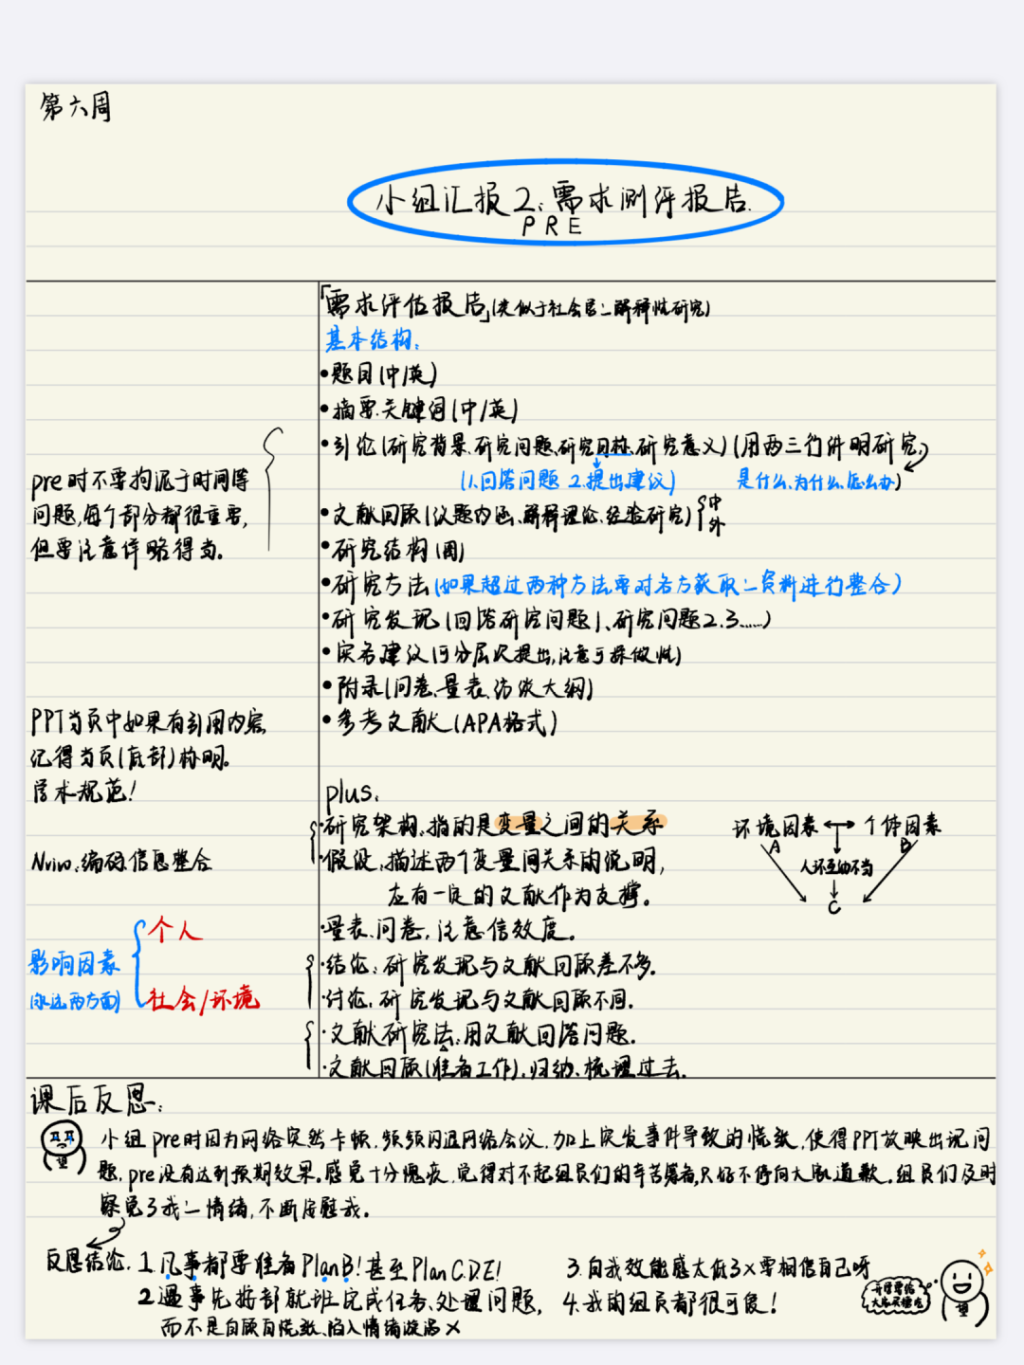 第六周
小组汇报2：需求测评报告.
PRE
「需求评估报告」(类似于社会学二解释性研究)
基本结构：
•题目(中/英)
•摘要、关键词(中/英)
•引论(研究背景、研究问题、研究目标、研究意义)(用两三行阐明研究,
(1.回答问题 2.提出建议)
是什么、为什么、怎么办)
pre时不要拘泥于时间等
问题,每个部分都很重要,
但要注意详略得当。
•文献回顾(议题内涵、解释理论、经验研究){中
外
•研究结构(图)
•研究方法(如果超过两种方法,需对各方获取二资料进行整合)
•研究发现(回答研究问题1、研究问题2.3......)
•实务建议(可分层次提出,注意可操做性)
•附录(问卷、量表、访谈大纲)
•参考文献(APA格式)
PPT当页中如果有引用内容,
记得当页(底部)标明。
学术规范!
plus.
·研究架构:指的是变量之间的关系
·假设:描述两个变量间关系的说明,
应有一定的文献作为支撑。
环境因素 ↔ 个体因素
A B
人环互动不当
C
Nvivo:编码信息整合
·量表、问卷:注意信效度。
·结论:研究发现与文献回顾差不多.
·讨论:研究发现与文献回顾不同.
·文献研究法:用文献回答问题.
·文献回顾(准备工作).归纳、梳理过去.
影响因素
(永远两方面)
个人
社会/环境
课后反思：
小组pre时因为网络突然卡顿,频频闪退网络会议,加上突发事件导致的慌张,使得PPT放映出现问
题,pre没有达到预期效果。感觉十分愧疚,觉得对不起组员们的辛苦筹备,只好不停向大家道歉。组员们及时
察觉了我二情绪,不断安慰我。
反思结论.
1.凡事都要准备PlanB!甚至PlanC.D.E!
2.遇事先将部就班完成任务、处理问题,
而不是自顾自慌张、陷入情绪漩涡×
3.自我效能感太低了×要相信自己呀
4.我的组员都很可爱!